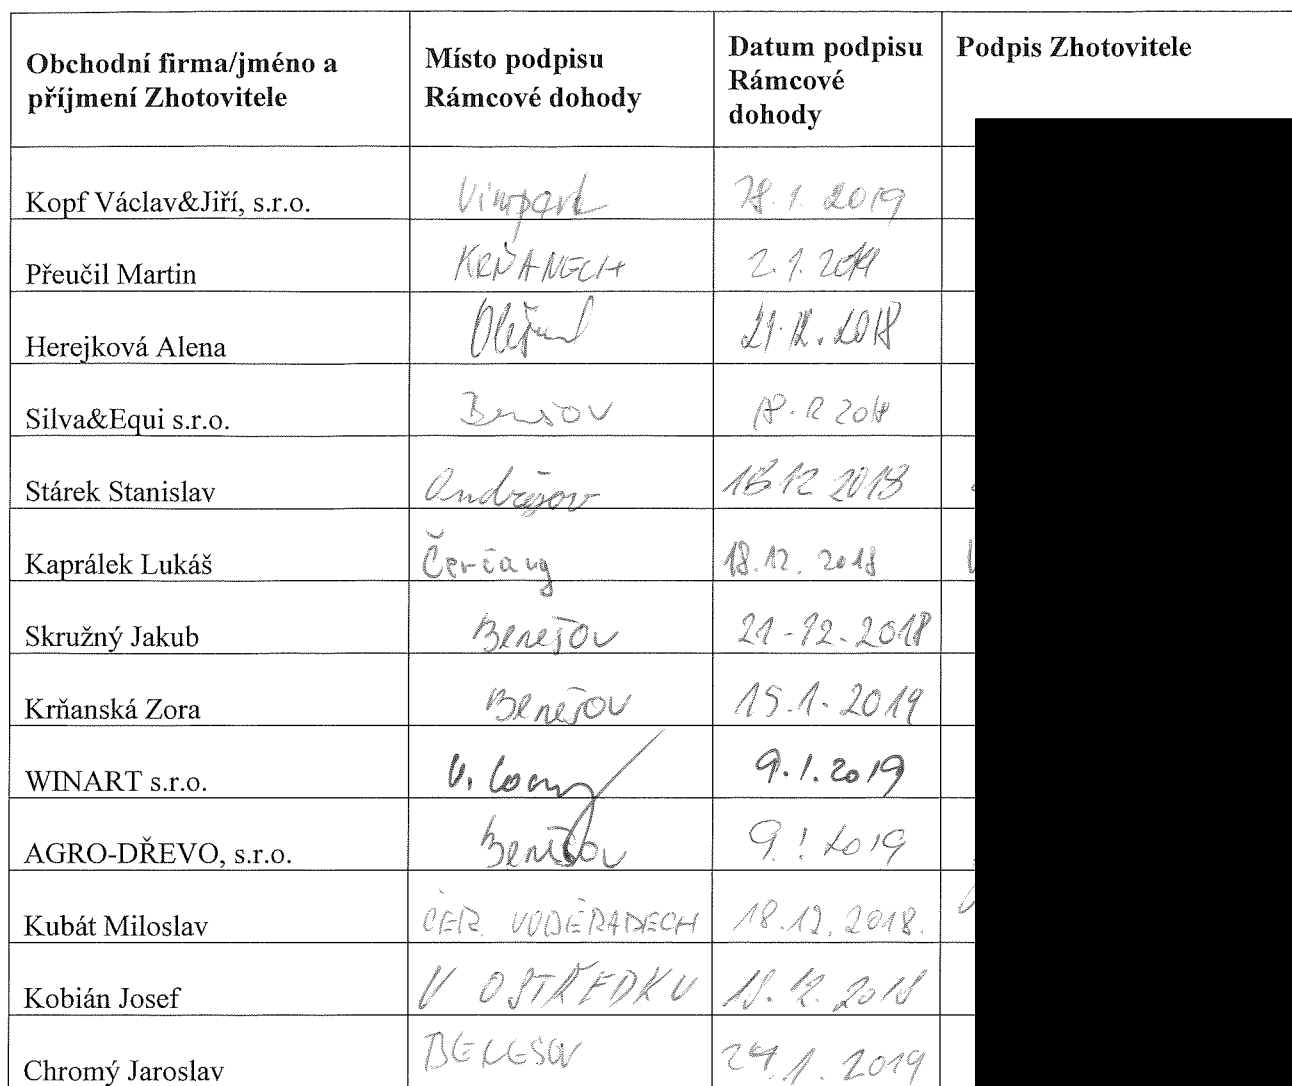 Obchodní firma/jméno a
příjmení Zhotovitele
Místo podpisu
Rámcové dohody
Datum podpisu
Rámcové
dohody
Podpis Zhotovitele
Kopf Václav&Jiří, s.r.o. Vimperk 1. 2019
Přeučil Martin KRŇANECH 2.1.2019
Herejková Alena 21.12.2018
Silva&Equi s.r.o. Benešov 18.12 2018
Stárek Stanislav Ondřejov 18.12 2018
Kaprálek Lukáš Čerčany 18.12. 2018
Skružný Jakub Benešov 21-12.2018
Krňanská Zora Benešov 15.1.2019
WINART s.r.o. 9.1.2019
AGRO-DŘEVO, s.r.o. Benešov 9.1 2019
Kubát Miloslav ČER. VODĚRADECH 18.12.2018.
Kobián Josef V OSTŘEDKU 18.12.2018
Chromý Jaroslav BENEŠOV 24.1.2019